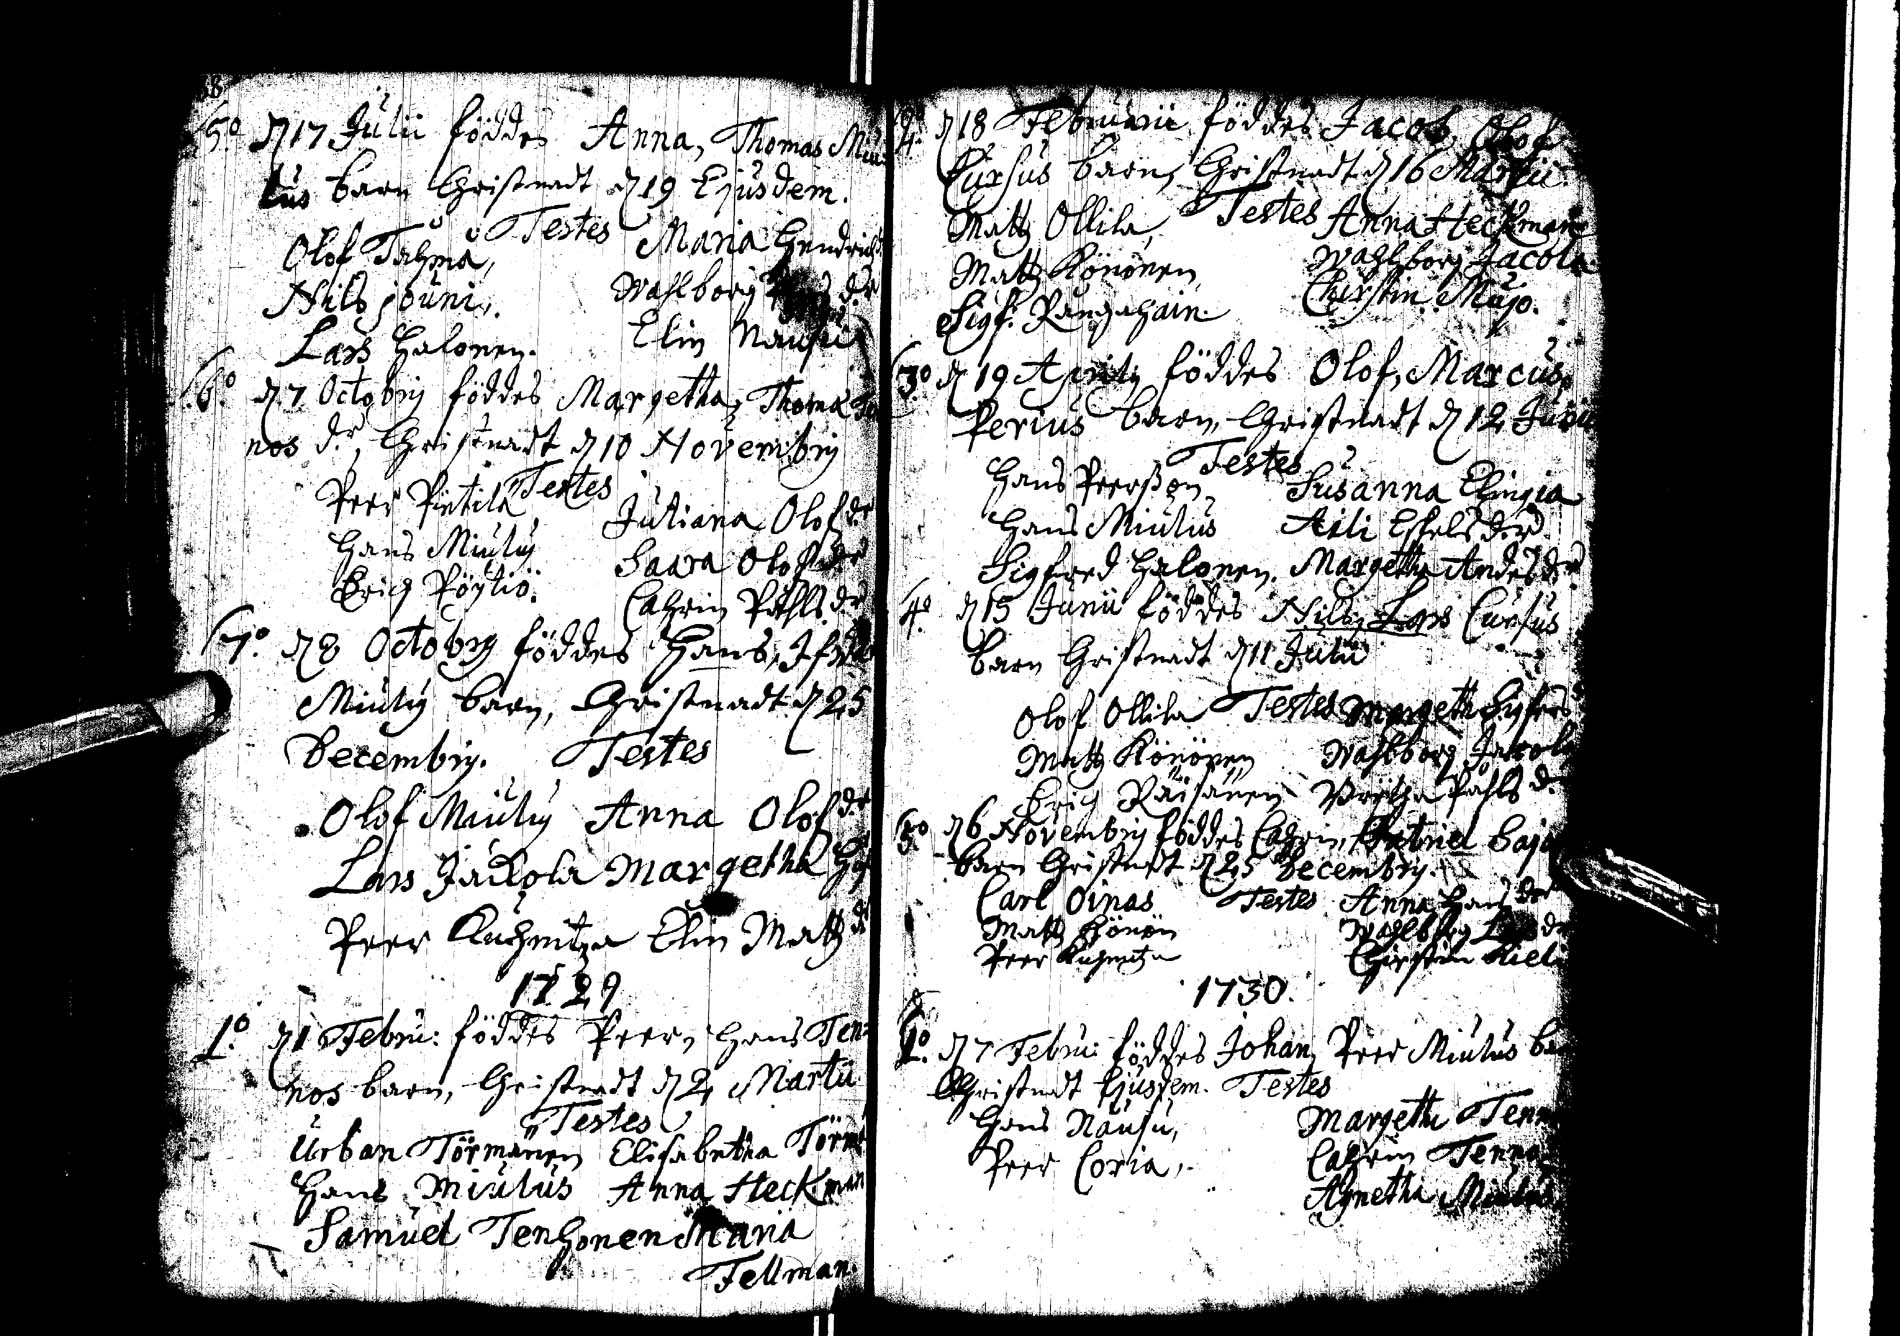 5º d 17 Julii föddes Anna, Thomas Miu
lus barn Christnadt d 19 Ejusdem.
Testes
Olof Tahmä, Maria Hendrichs
Nils jouni, Wahlborg
Lars Halonen. Elin Nausu
6º d 7 Octobris föddes Margetha, Thoma
nos dr, Christnadt d 10 Novembris
Testes
Peer Pietilä Juliana Olofs dr
Hans Miulus Saara Olofs dr
Erich Pöytiö. Cahrin Påhls dr
7º d 8 Octobris föddes Hans,
Miulus barn, Christnadt d 25
Decembris. Testes
Olof Miulus Anna Olofs dr
Lars Jackola Margetha
Peer Kuchmitza Elin Matts dr
1729
1º d 1 Febru: föddes Peer, Hans Ten
nos barn, Christnadt d 2 Martii
Testes
Urban Törmänen Elisabetha Törmä
Hans Miulus Anna Heckman
Samuel Tenhonen Maria
Fellman.
2º d 18 Februarii föddes Jacob, Olof
Cursus barn, Christnadt d 16 Martii
Testes
Matts Ollila, Anna Heckman
Matts Könönen Wahlborg Jacola
Sigf: Rangahain. Chirstin Mujo.
3º d 19 Aprilis föddes Olof, Marcus
Perius barn, Christnadt d 12 Junii
Testes
Hans Peersson Susanna Elingia
Hans Miulus Aili Eskels dr
Sigfred Halonen. Margetha Anders dr
4º d 15 Junii föddes Nils, Lars Cursus
barn Christnadt d 11 Julii
Testes
Olof Ollila Margetha Sigfers
Matts Könönen Wahlborg Jacola
Erich Räisänen Påhls dr
5º d 6 Novembris föddes Cahrin, Gabriel Baja
barn Christnadt d 25 Decembris.
Carl Oinas Testes Anna Hans dr
Matts Könön Wahlborg Lars dr
Peer Kuchmitza Chirstin
1730.
1º d 7 Febru: föddes Johan, Peer Miulus ba
Christnadt Ejusdem. Testes
Hans Nausu, Margetha Tenn
Peer Coria, Cahrin Tenno
Agnetha Miulus